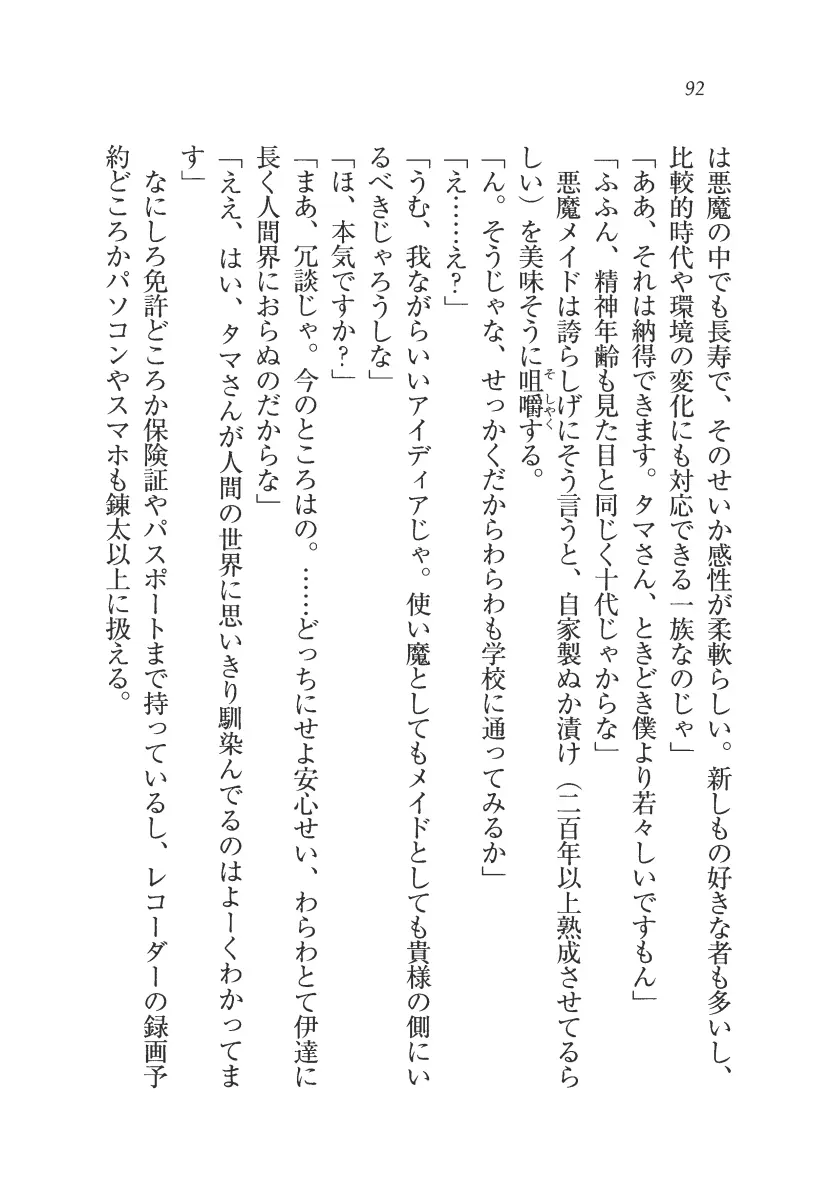 92
は悪魔の中でも長寿で、そのせいか感性が柔軟らしい。新しもの好きな者も多いし、
比較的時代や環境の変化にも対応できる一族なのじゃ」
「ああ、それは納得できます。タマさん、ときどき僕より若々しいですもん」
「ふふん、精神年齢も見た目と同じく十代じゃからな」
悪魔メイドは誇らしげにそう言うと、自家製ぬか漬け（二百年以上熟成させてるら
しい）を美味そうに咀嚼そしゃくする。
「ん。そうじゃな、せっかくだからわらわも学校に通ってみるか」
「え……え？」
「うむ、我ながらいいアイディアじゃ。使い魔としてもメイドとしても貴様の側にい
るべきじゃろうしな」
「ほ、本気ですか？」
「まあ、冗談じゃ。今のところはの。……どっちにせよ安心せい、わらわとて伊達に
長く人間界におらぬのだからな」
「ええ、はい、タマさんが人間の世界に思いきり馴染んでるのはよーくわかってま
す」
なにしろ免許どころか保険証やパスポートまで持っているし、レコーダーの録画予
約どころかパソコンやスマホも錬太以上に扱える。